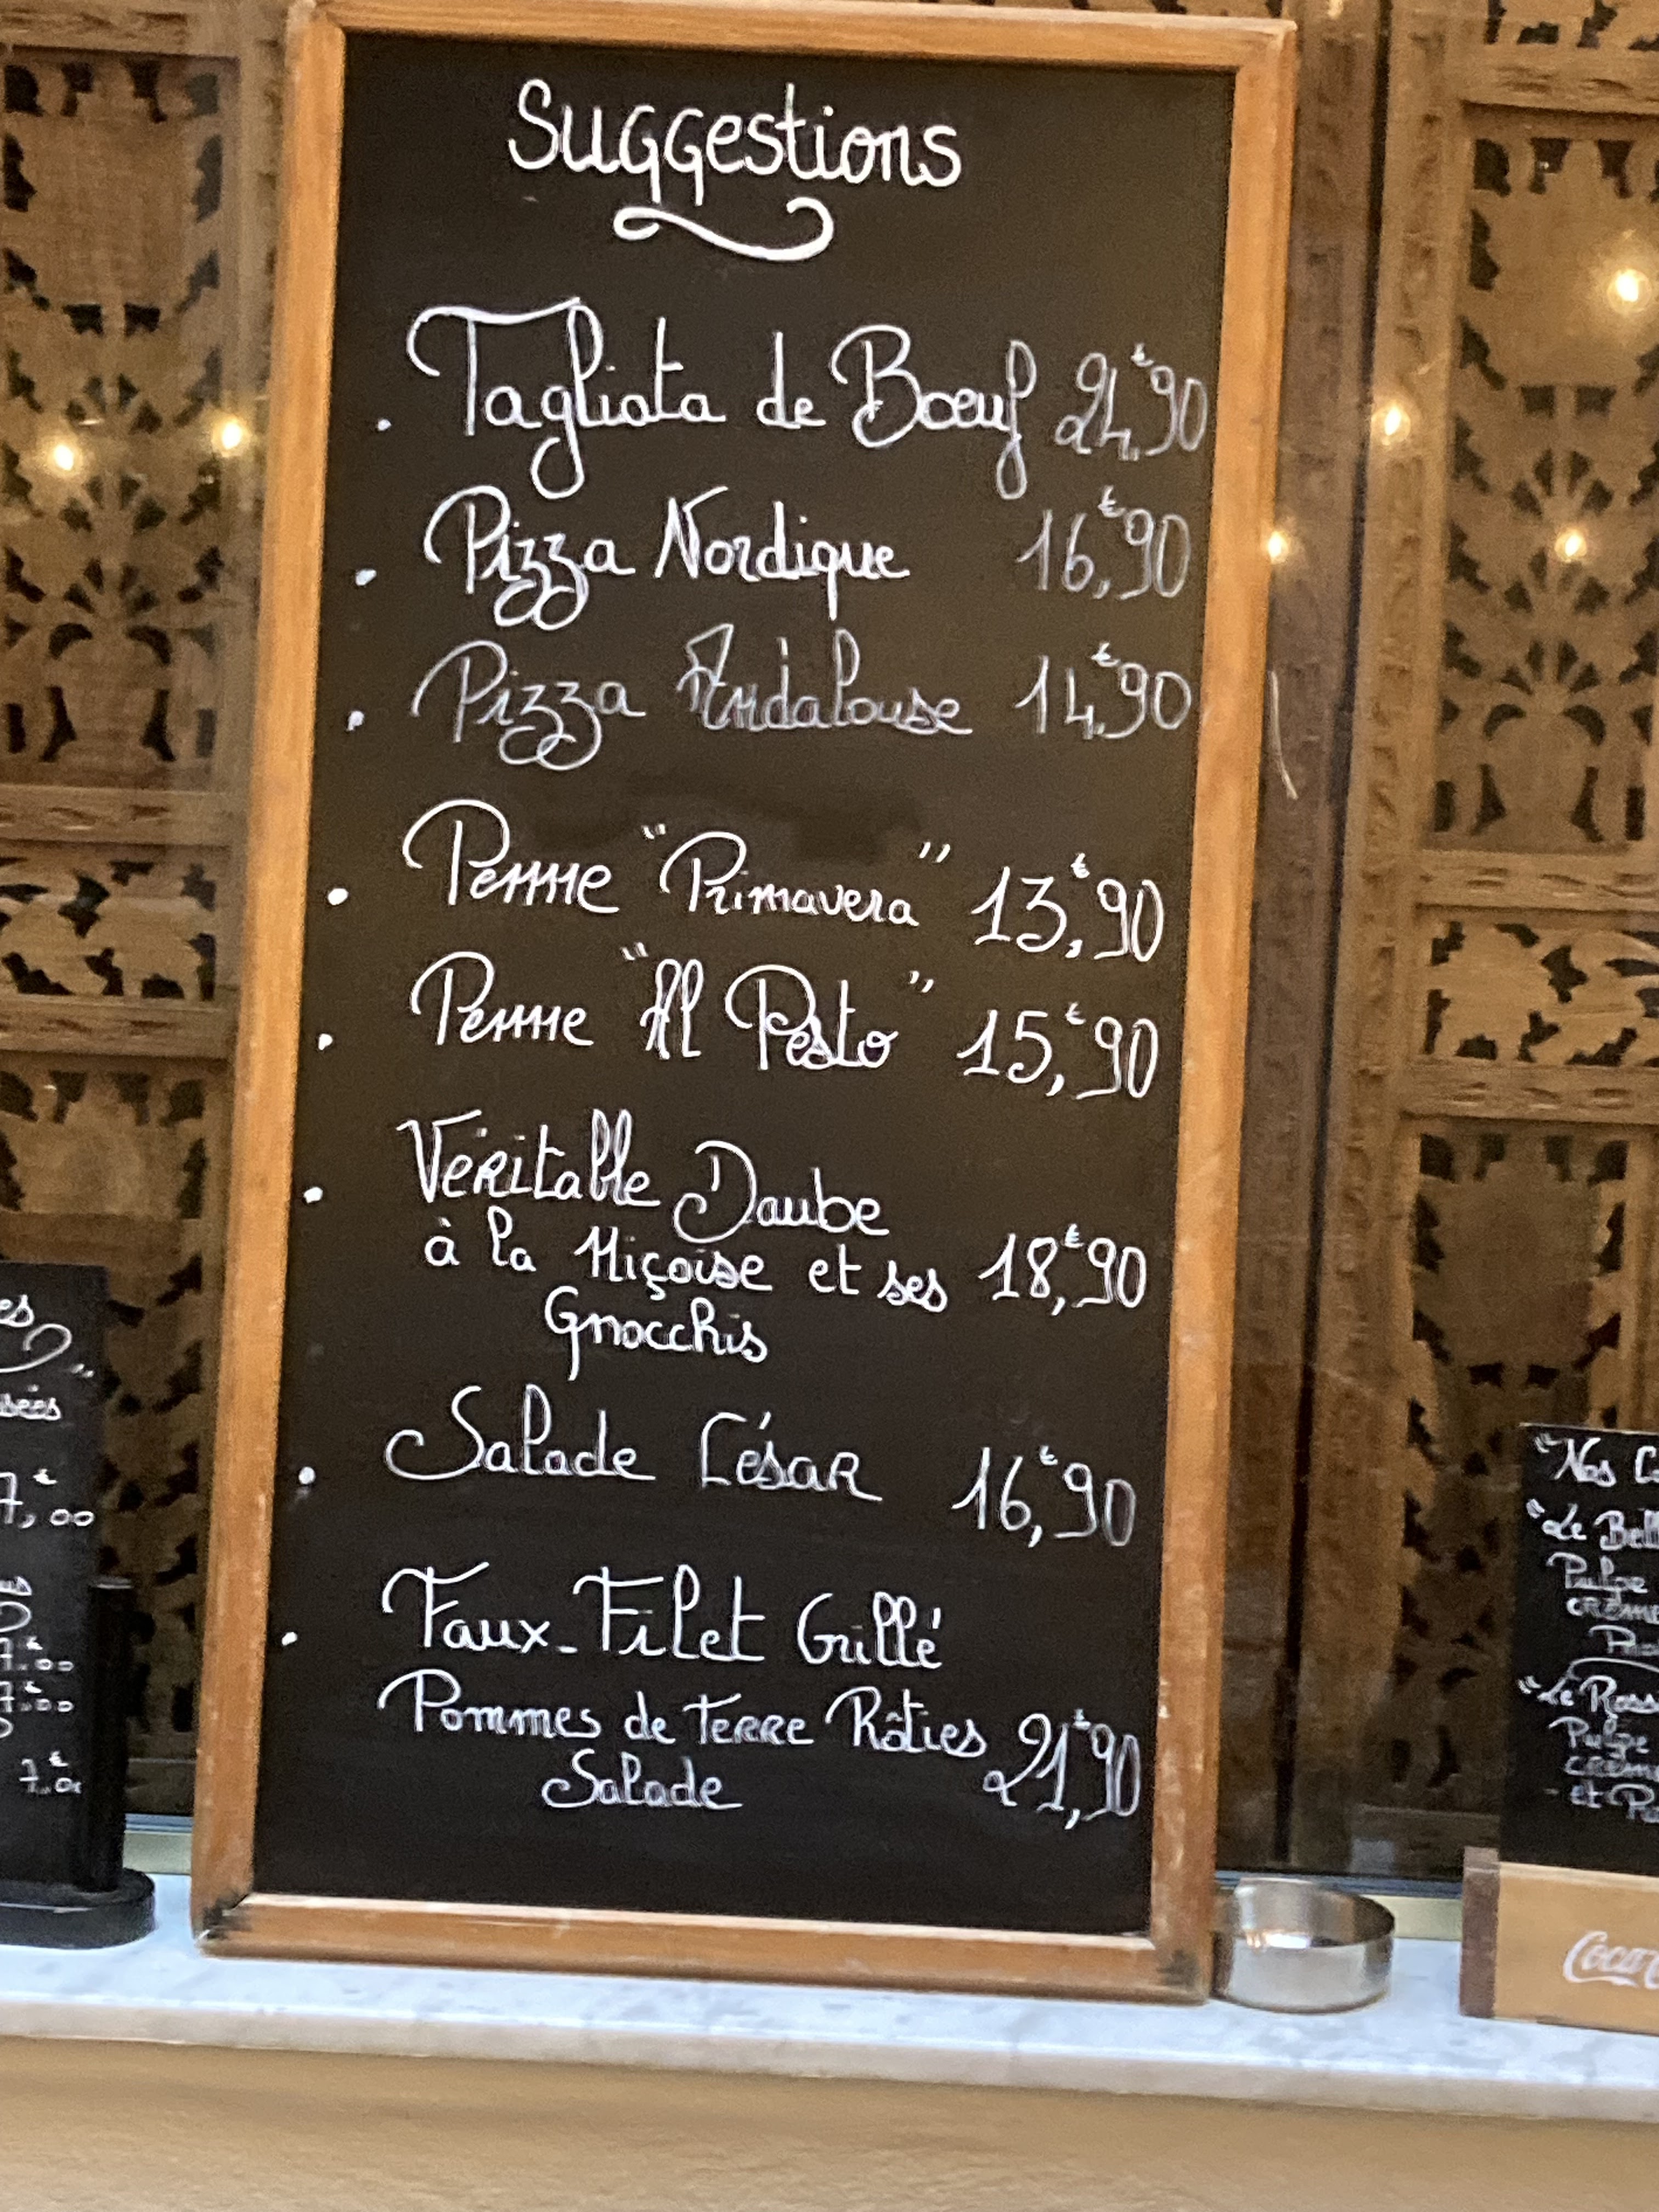 Suggestions
. Tagliata de Bœuf 24,€90
. Pizza Nordique 16,€90
. Pizza Andalouse 14,€90
. Penne "Primavera" 13,€90
. Penne "Al Pesto" 15,€90
. Véritable Daube
à la Niçoise et ses 18,€90
Gnocchis
. Salade César 16,€90
. Faux-Filet Grillé
Pommes de Terre Rôties 21,€90
Salade
7,€00
7.€00
7.€00
"Nos
"Le
Pulpe
"Le
Pulpe
et